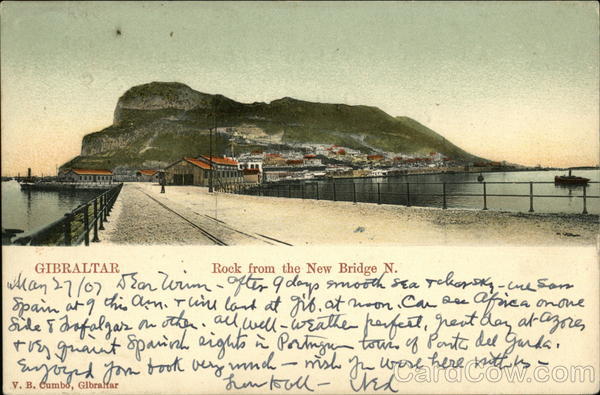 GIBRALTAR Rock from the New Bridge N.
May 27/07 Dear Winn - After 9 days smooth sea + - we saw
Spain at 9 this Am. + will land at Gib. at noon. Can see Africa on one
Side & Trafalgar on other. All well - Weather perfect, great day at Azores
+ very quaint Spanish sights in Portugese town of Ponte del Garda.
Enjoyed your book very much - wish you were here with us -
Ned
V. B. Cumbo, Gibraltar
CardCow.com